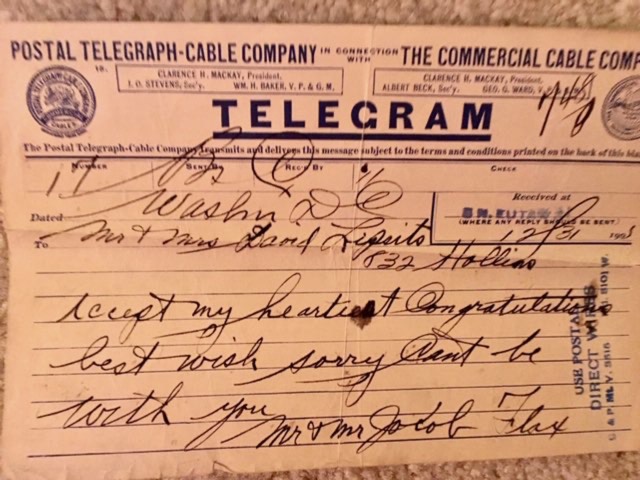 POSTAL TELEGRAPH-CABLE COMPANY IN CONNECTION WITH THE COMMERCIAL CABLE COMP
CLARENCE H. MACKAY, President.
I. O. STEVENS, Sec'y. WM. H. BAKER, V. P. & G. M.
CLARENCE H. MACKAY, President.
ALBERT BECK, Sec'y. GEO. G. WARD, V
TELEGRAM
The Postal Telegraph-Cable Company transmits and delivers this message subject to the terms and conditions printed on the back of this bla
NUMBER SENT BY REC'D BY CHECK
11
Received at
(WHERE ANY REPLY SHOULD BE SENT.)
Dated Washn D C
12/31 190
To Mr & Mrs David Lipsitz
832 Hollins
Accept my heartiest Congratulations
best wish sorry Cant be
with you
Mr & Mr Jacob Flax
USE POSTAL
DIRECT WIRES